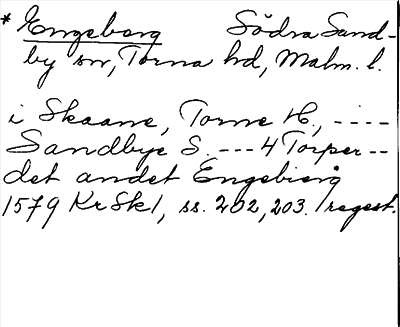 * Engeborg Södra Sand-
by sn, Torna hd, Malm. l.
i Skaane, Torne H., ----
Sandbye S. --- 4 Torper --
det andet Engebierg
1579 KrSk1, ss. 202, 203. regest.